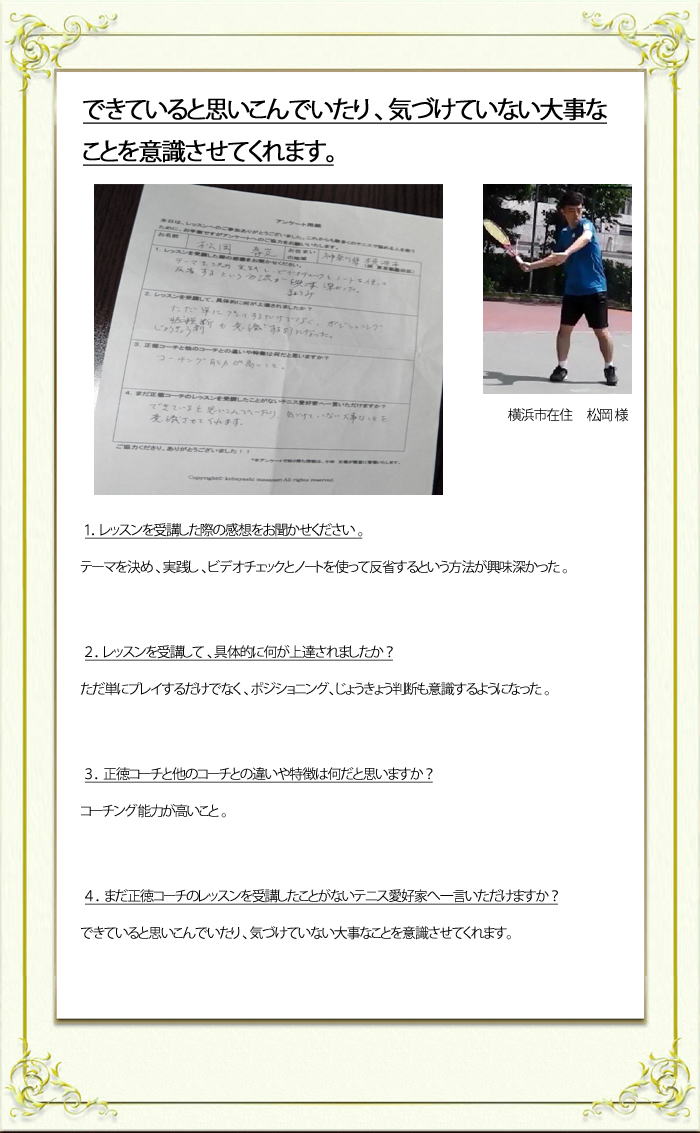 できていると思いこんでいたり、気づけていない大事な
ことを意識させてくれます。
アンケート用紙
本日は、レッスンへのご参加ありがとうございました。これからも数多くのテニスで悩める人を救う
ために、お手数ですがアンケートへのご協力をお願いいたします。
お名前 松岡 お住まいの地域 神奈川県
1．レッスンを受講した際の感想をお聞かせください。
テーマを決め、実践し、ビデオチェックとノートを使って
反省するという方法が興味深かった。
2．レッスンを受講して、具体的に何が上達されましたか？
ただ単にプレイするだけでなく、ポジショニング
じょうきょう判断も意識するようになった。
3．正徳コーチと他のコーチとの違いや特徴は何だと思いますか？
コーチング能力が高いこと。
4．まだ正徳コーチのレッスンを受講したことがないテニス愛好家へ一言いただけますか？
できていると思いこんでいたり、気づけていない大事なことを
意識させてくれます。
ご協力くださり、ありがとうございました！！
Copyright© kobayashi masanori All rights reserved.
横浜市在住　松岡 様
1. レッスンを受講した際の感想をお聞かせください。
テーマを決め、実践し、ビデオチェックとノートを使って反省するという方法が興味深かった。
２. レッスンを受講して、具体的に何が上達されましたか？
ただ単にプレイするだけでなく、ポジショニング、じょうきょう判断も意識するようになった。
３. 正徳コーチと他のコーチとの違いや特徴は何だと思いますか？
コーチング能力が高いこと。
４. まだ正徳コーチのレッスンを受講したことがないテニス愛好家へ一言いただけますか？
できていると思いこんでいたり、気づけていない大事なことを意識させてくれます。